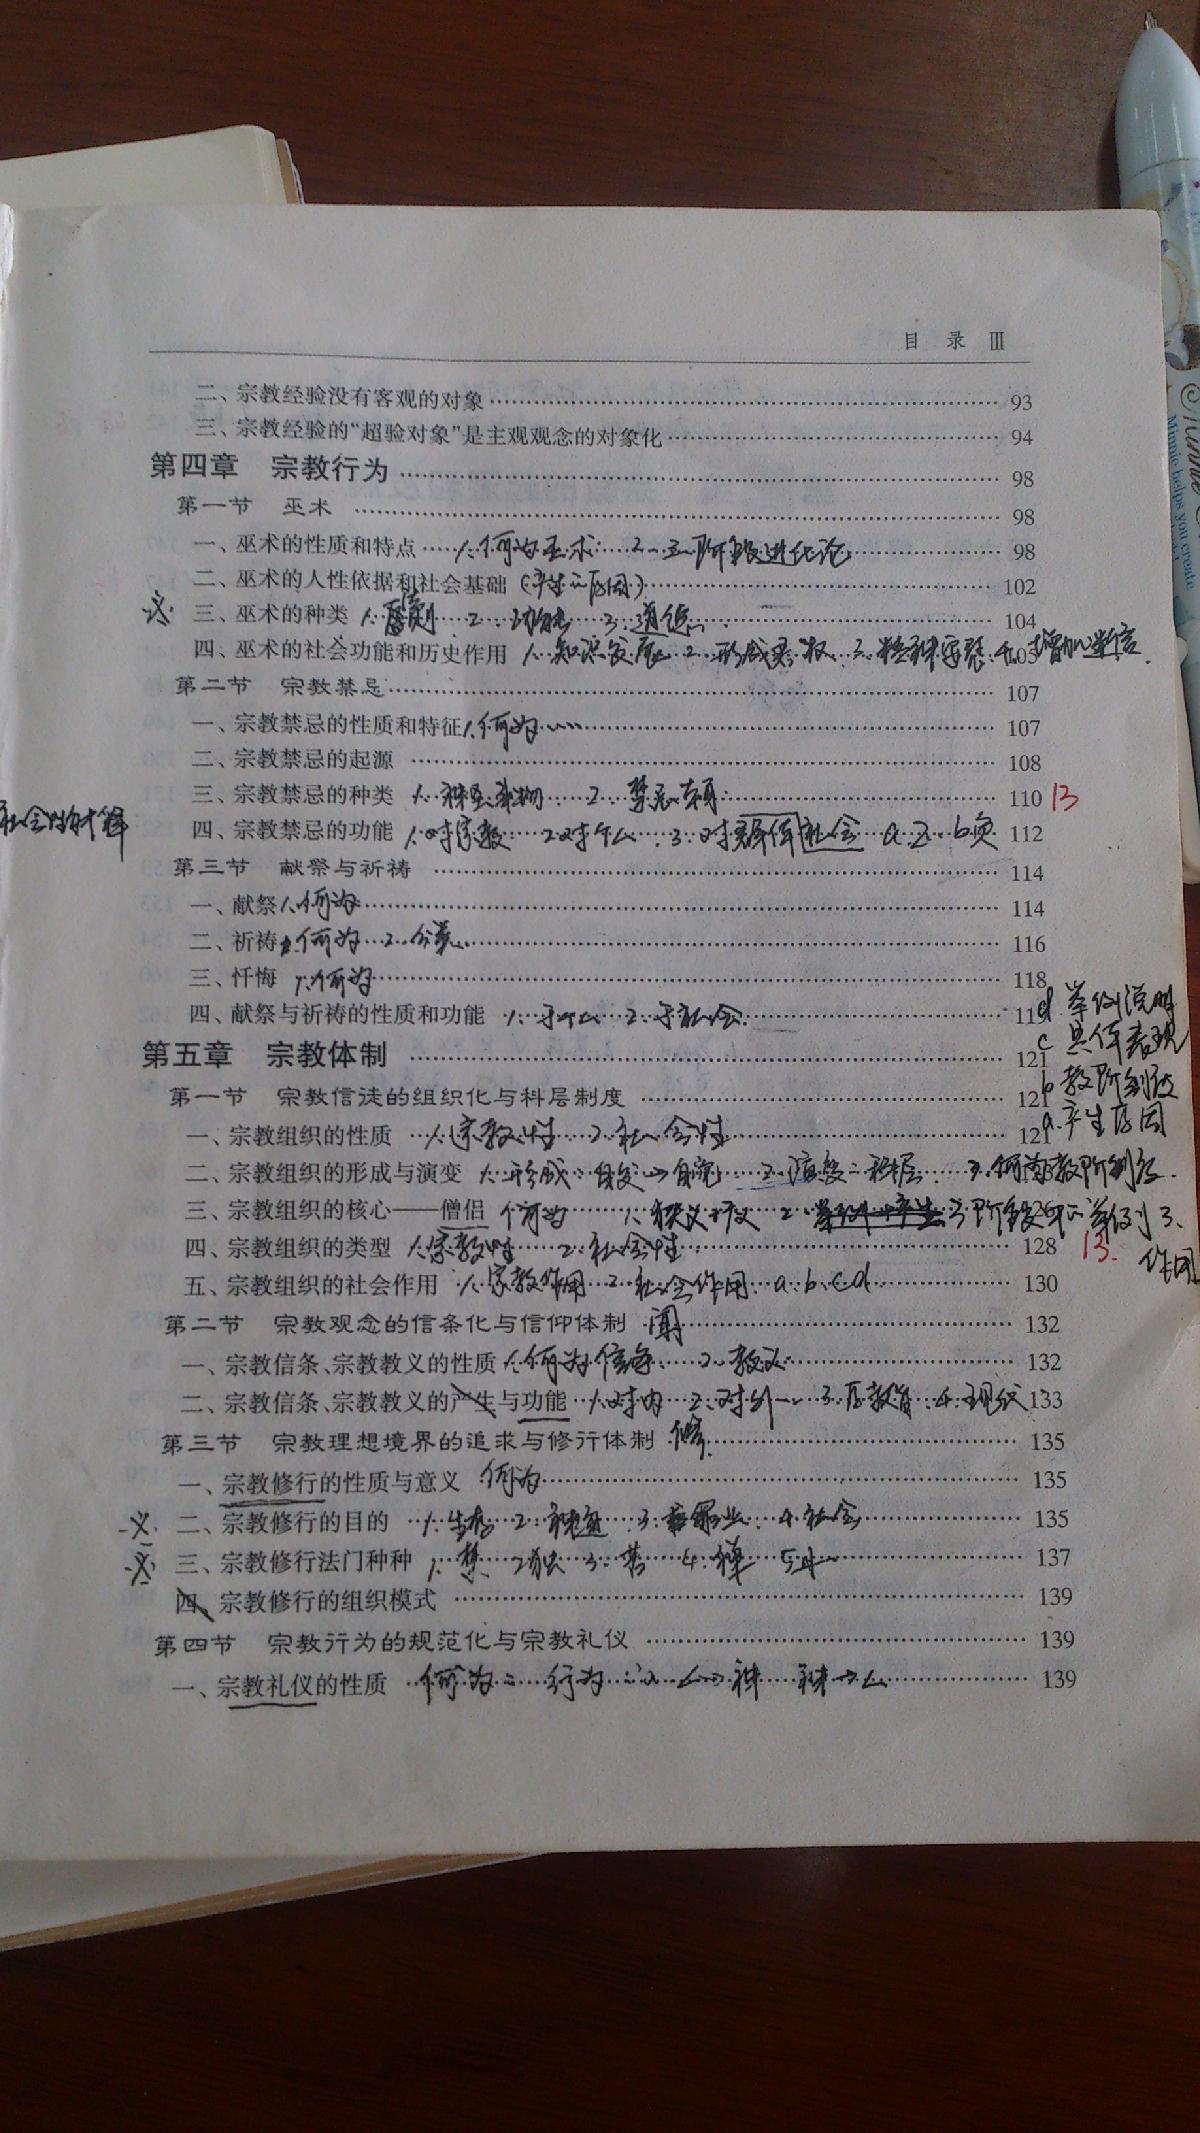 目 录 Ⅲ
二、宗教经验没有客观的对象 93
三、宗教经验的“超验对象”是主观观念的对象化 94
第四章 宗教行为 98
第一节 巫术 98
一、巫术的性质和特点 1.何为巫术 2.三阶段进化论 98
二、巫术的人性依据和社会基础 102
三、巫术的种类 2.功能 3.道德 104
四、巫术的社会功能和历史作用 1.知识发展 2.形成 3.精神
第二节 宗教禁忌 107
一、宗教禁忌的性质和特征 1.何为 107
二、宗教禁忌的起源 108
三、宗教禁忌的种类 2.禁忌 110 13
四、宗教禁忌的功能 1.对宗教 2.对个人 3.对群体社会 a.正 b.负 112
第三节 献祭与祈祷 114
一、献祭 1.何为 114
二、祈祷 1.何为 2.分类 116
三、忏悔 1.何为 118
四、献祭与祈祷的性质和功能 1.于个人 2.于社会
d 举例说明
c 具体表现
b 教阶制度
a.产生原因
第五章 宗教体制 121
第一节 宗教信徒的组织化与科层制度 121
一、宗教组织的性质 1.宗教性 2.社会性 121
二、宗教组织的形成与演变 1.形成：自发→自觉 3.何为教阶制度
三、宗教组织的核心——僧侣 何为 1.狭义 广义 2. 3.作用
四、宗教组织的类型 1.宗教性 2.社会性 128 13.
五、宗教组织的社会作用 1.宗教作用 2.社会作用 a.b.c.d 130
第二节 宗教观念的信条化与信仰体制 132
一、宗教信条、宗教教义的性质 1.何为信条 2.教义 132
二、宗教信条、宗教教义的产生与功能 1.对内 2.对外 4.现代 133
第三节 宗教理想境界的追求与修行体制 修 135
一、宗教修行的性质与意义 何为 135
二、宗教修行的目的 1.生存 4.社会 135
三、宗教修行法门种种 1.禁 3.苦 4.禅 137
四、宗教修行的组织模式 139
第四节 宗教行为的规范化与宗教礼仪 139
一、宗教礼仪的性质 何为 行为 人→神 神→人 139